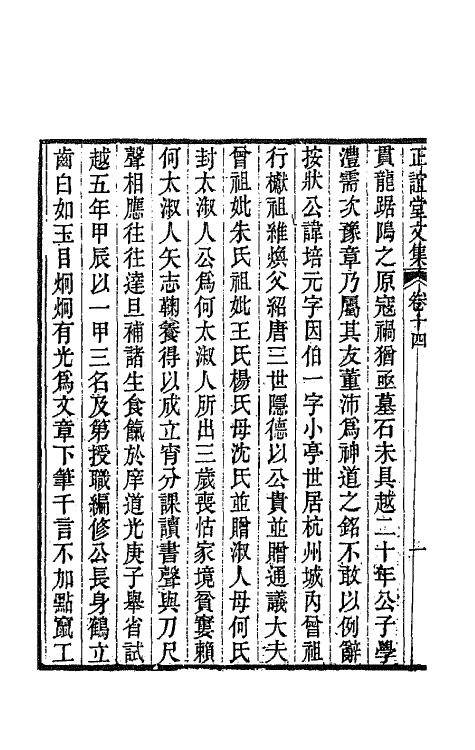 正誼堂文集 卷十四 一
貫龍踞隖之原寇禍猶亟墓石未具越二十年公子學
灃需次豫章乃屬其友董沛爲神道之銘不敢以例辭
按狀公諱培元字因伯一字小亭世居杭州城內曾祖
行櫆祖維煥父紹唐三世隱德以公貴並贈通議大夫
曾祖妣朱氏祖妣王氏楊氏母沈氏並贈淑人母何氏
封太淑人公爲何太淑人所出三歲喪怙家境貧窶賴
何太淑人矢志鞠養得以成立宵分課讀書聲與刀尺
聲相應往往達旦補諸生食餼於庠道光庚子舉省試
越五年甲辰以一甲三名及第授職編修公長身鶴立
齒白如玉目炯炯有光爲文章下筆千言不加點竄工